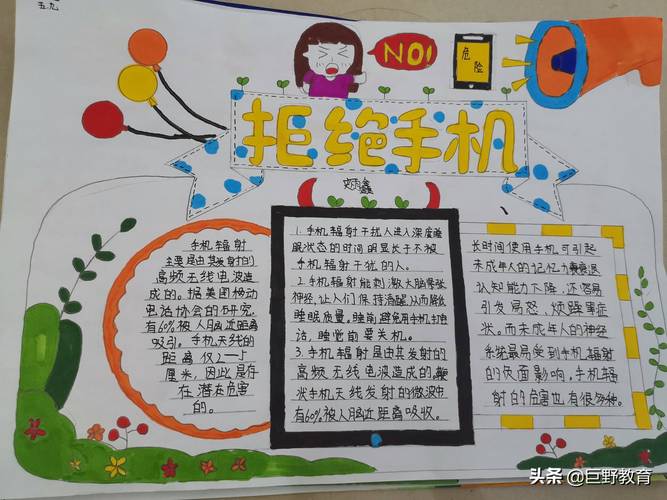 五九
NO!
危险
拒绝手机
手机辐射
主要是由其发射的
高频无线电波造
成的。据美国移动
电话协会的研究,
有60%被人脑近距离
吸引。手机天线的
距离仅2—5
厘米,因此是存
在潜在危害
的。
1.手机辐射干扰人进入深度睡
眠状态的时间明显长于不被
手机辐射干扰的人。
2.手机辐射能刺激大脑紧张
神经,让人们保持清醒从而降低
睡眠质量。睡前避免用手机打电
话,睡觉前要关机。
3.手机辐射是由其发射的
高频无线电波造成的。
状手机天线发射的微波中
有60%被人脑近距离吸收。
长时间使用手机可引起
未成年人的记忆力衰退
认知能力下降,还容易
引发局怒、烦躁等症
状。而未成年人的神经
系统最易受到手机辐射
的负面影响。手机辐
射的危害也有很多种。
头条 @巨野教育